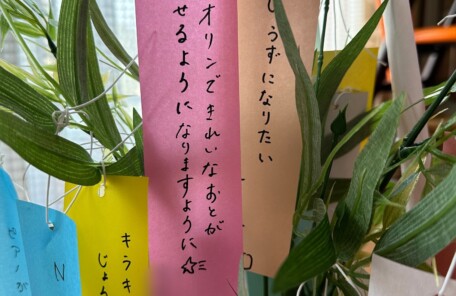 じょうずになりたい
オリンできれいなおとが
せるようになりますように☆
キラキ
じょう
N
ピアノが